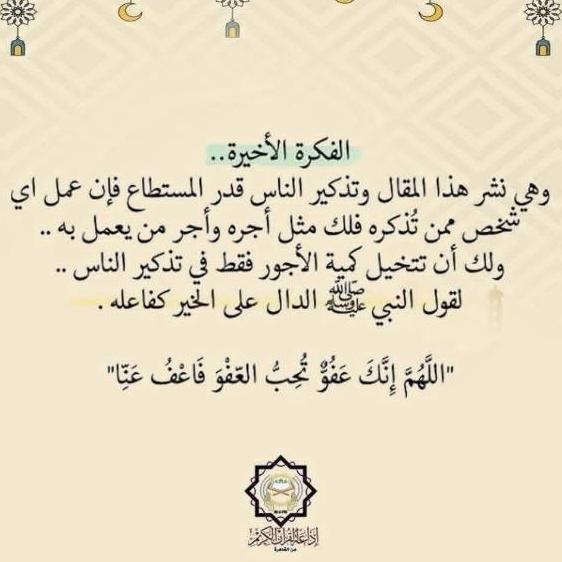 الفكرة الأخيرة..
وهي نشر هذا المقال وتذكير الناس قدر المستطاع فإن عمل اي
شخص ممن تُذكره فلك مثل أجره وأجر من يعمل به ..
ولك أن تتخيل كمية الأجور فقط في تذكير الناس ..
لقول النبي ﷺ الدال على الخير كفاعله .
"اللَّهُمَّ إِنَّكَ عَفُوٌّ تُحِبُّ العَفْوَ فَاعْفُ عَنِّا"
إذاعة القرآن الكريم
من القاهرة